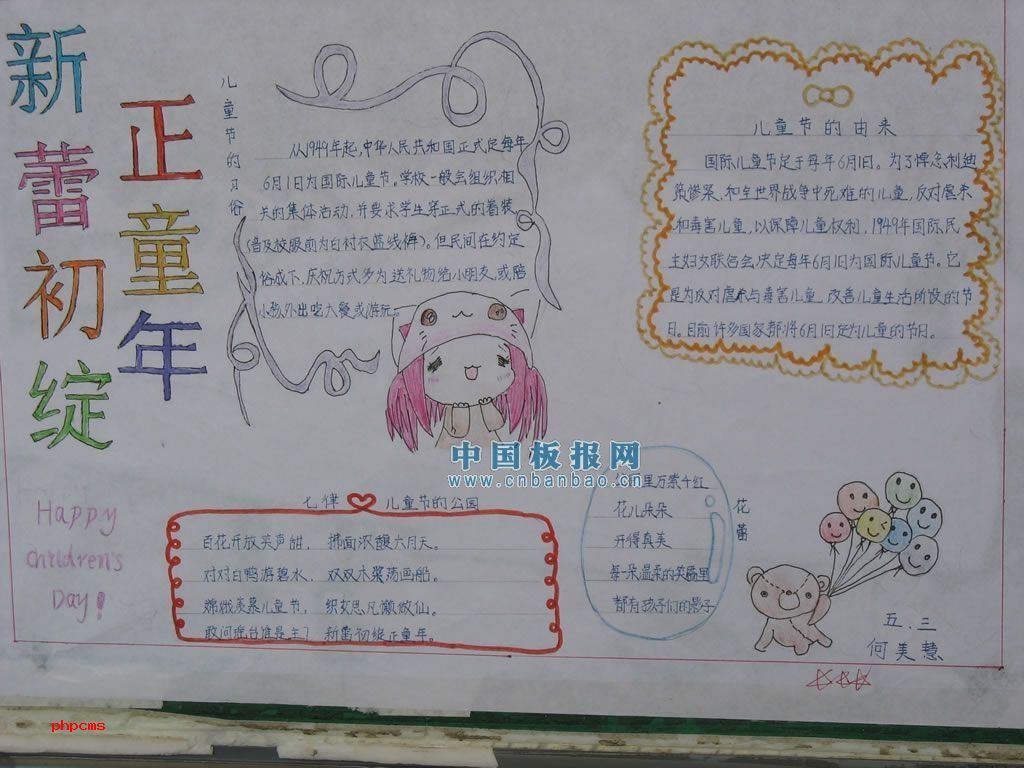 新蕾初绽
正童年
儿童节的习俗
从1949年起,中华人民共和国正式定每年
6月1日为国际儿童节。学校一般会组织相
关的集体活动,并要求学生穿正式的着装
(普及校服前为白衬衣蓝线裤)。但民间在约定
俗成下,庆祝方式多为送礼物给小朋友,或陪
小孩外出吃大餐或游玩。
儿童节的由来
国际儿童节定于每年6月1日。为了悼念利迪
策惨案,和全世界战争中死难的儿童,反对虐杀
和毒害儿童,以保障儿童权利,1949年国际民
主妇女联合会决定每年6月1日为国际儿童节。它
是为反对虐杀与毒害儿童,改善儿童生活所设的节
日。目前许多国家都将6月1日定为儿童的节日。
中国板报网
www.cnbanbao.cn
Happy
Children's
Day!
七律 儿童节的公园
百花开放笑声甜, 拂面浓馥六月天。
对对白鸭游碧水, 双双木桨荡画船。
嫦娥羡慕儿童节, 织女思凡懒做仙。
敢问舞台谁是主? 新蕾初绽正童年。
花蕾
里万紫千红
花儿朵朵
开得真美
每一朵温柔的笑靥里
都有孩子们的影子
五.三
何美慧
phpcms